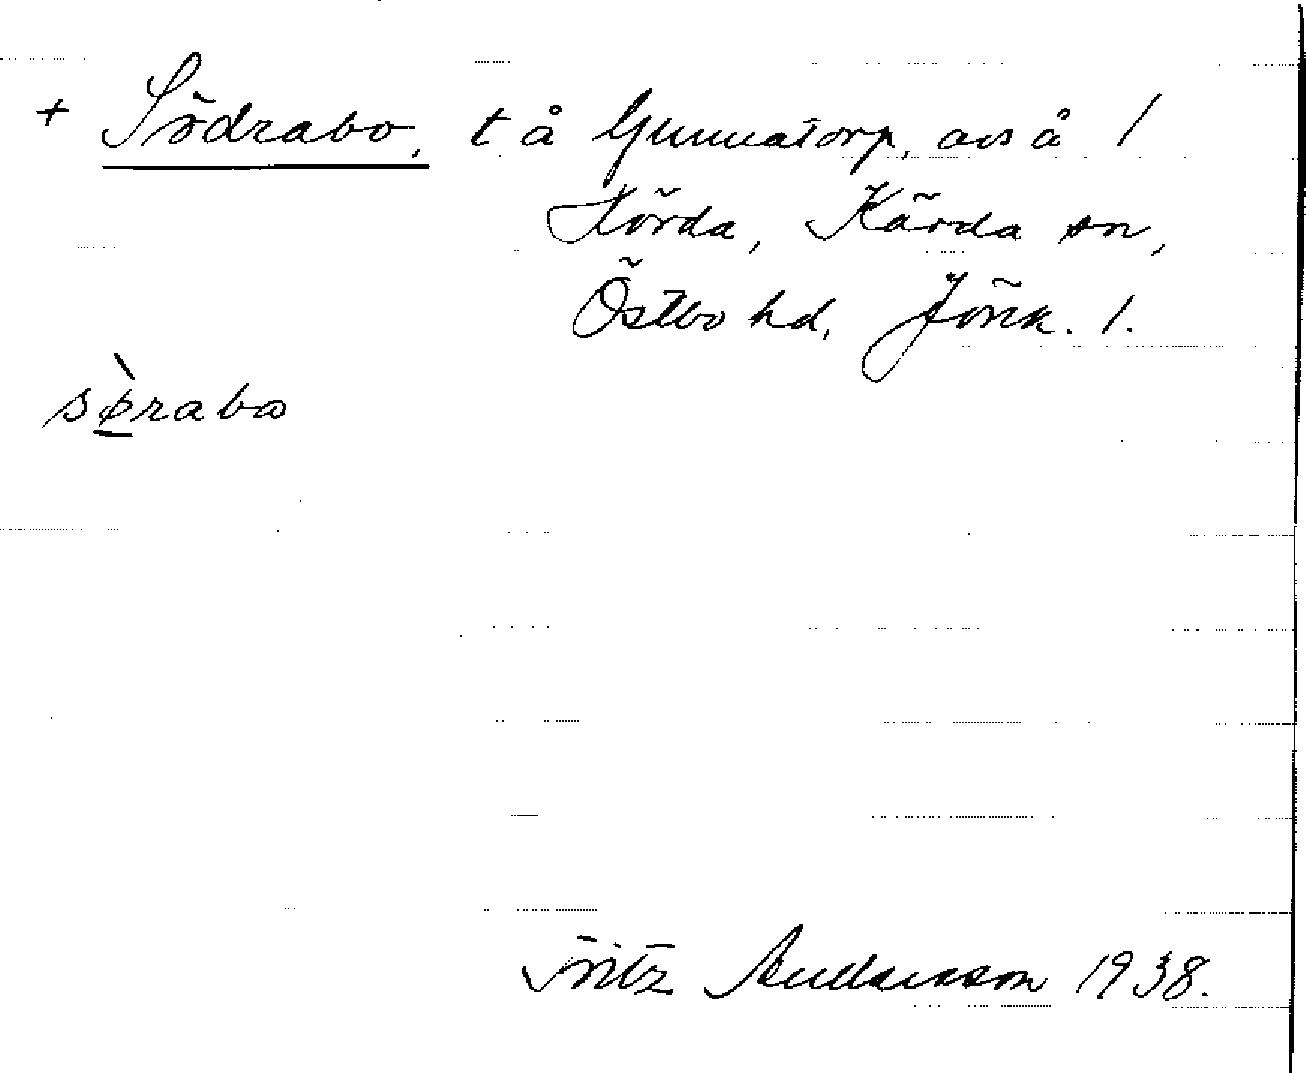 + Södrabo, t å Gunnatorp, avs å /
Hörda, Kärda sn,
Östbo hd, Jönk. l.
sørabo
Fritz Andersson 1938.